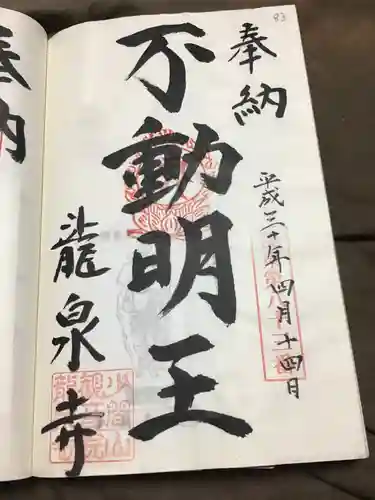 93
奉納
平成三十年四月十四日
不動明王
龍泉寺
奉納